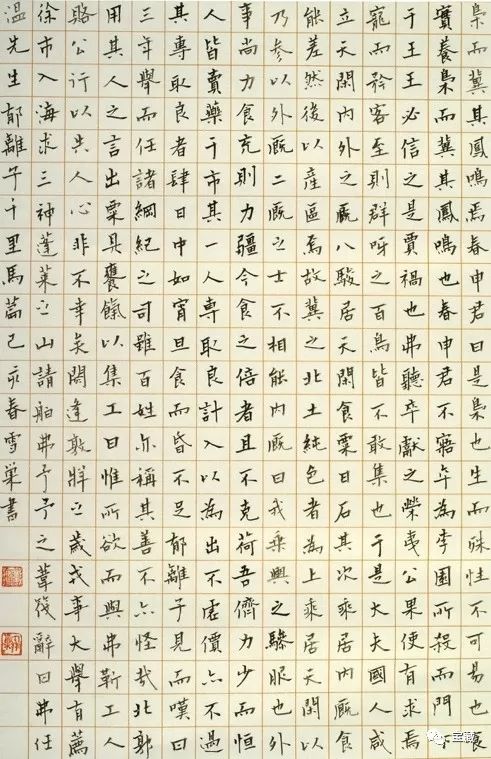 梟而冀其鳳鳴焉春申君曰是梟也生而殊性不可易也食
實養梟而冀其鳳鳴也春申君不寤也卒為李園所殺而門下
于王王必信之是賈禍也弗聽卒獻之榮夷公果使有求焉
寵而矜客至則群呀之百鳥皆不敢集也于是大夫國人咸
立天閑內外之廄八駿居天閑食粟日石其次乘居內廄食
能差然後以産區焉故冀之北土純色者為上乘居天閑以
乃參以外廄二廄之士不相能內廄曰我乘輿之驂服也外
事尚力食充則力彊今食之倍者且不克荷吾儕力少而恒
人皆賣藥于市其一人專取良計入以為出不虛價亦不過
其專取良者肆日中如宵旦食而昏不足郁離子見而嘆曰
三年舉而任諸綱紀之司雖百姓亦稱其善不亦怪哉北郭
用其人之言出粟具饔餼以集工曰惟所欲而與弗靳工人
駱公行以失人心非不幸矣閼逢敦牂之歲戎事大舉有薦
徐市入海求三神蓬萊之山請舶弗予予之葦筏辭曰弗任
溫先生郁離子千里馬篇己亥春雪巢書
宝藏